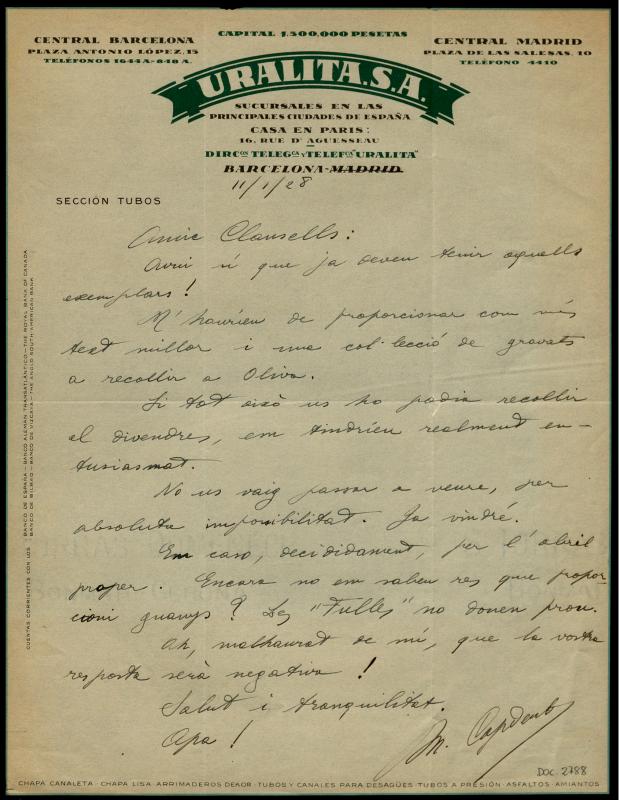 CAPITAL 1.500,000 PESETAS
CENTRAL BARCELONA
PLAZA ANTONIO LÓPEZ, 15
TELÉFONOS 1644 A.-848 A.
CENTRAL MADRID
PLAZA DE LAS SALESAS, 10
TELÉFONO 4410
URALITA. S. A.
SUCURSALES EN LAS
PRINCIPALES CIUDADES DE ESPAÑA
CASA EN PARIS:
16, RUE D'AGUESSEAU
DIRCON TELEGCA Y TELEFCA "URALITA"
BARCELONA-MADRID.
11/1/28
SECCIÓN TUBOS
Amic Clausells:
Avui sí que ja deveu tenir aquells
exemplars!
M'haurieu de proporcionar com més
text millor i una col·lecció de gravats
a recollir a Oliva.
Si tot això us ho podia recollir
el divendres, em tindrieu realment en-
tusiasmat.
No us vaig passar a veure, per
absoluta impossibilitat. Ja vindré.
Em caso, decididament, per l'abril
proper. Encara no em sabeu res que propor-
cioni guanys? Les "Fulles" no donen prou.
Ah, malhaurat de mi, que la vostra
resposta serà negativa!
Salut i tranquilitat.
Apa!
M. Capdevila
DOC. 2788
CUENTAS CORRIENTES CON LOS BANCO DE ESPAÑA - BANCO ALEMÁN TRANSATLÁNTICO - THE ROYAL BANK OF CANADA
BANCO DE BILBAO - BANCO DE VIZCAYA - THE ANGLO SOUTH-AMERICAN BANK
CHAPA CANALETA · CHAPA LISA ARRIMADEROS DEKOR · TUBOS Y CANALES PARA DESAGÜES · TUBOS A PRESIÓN · ASFALTOS · AMIANTOS